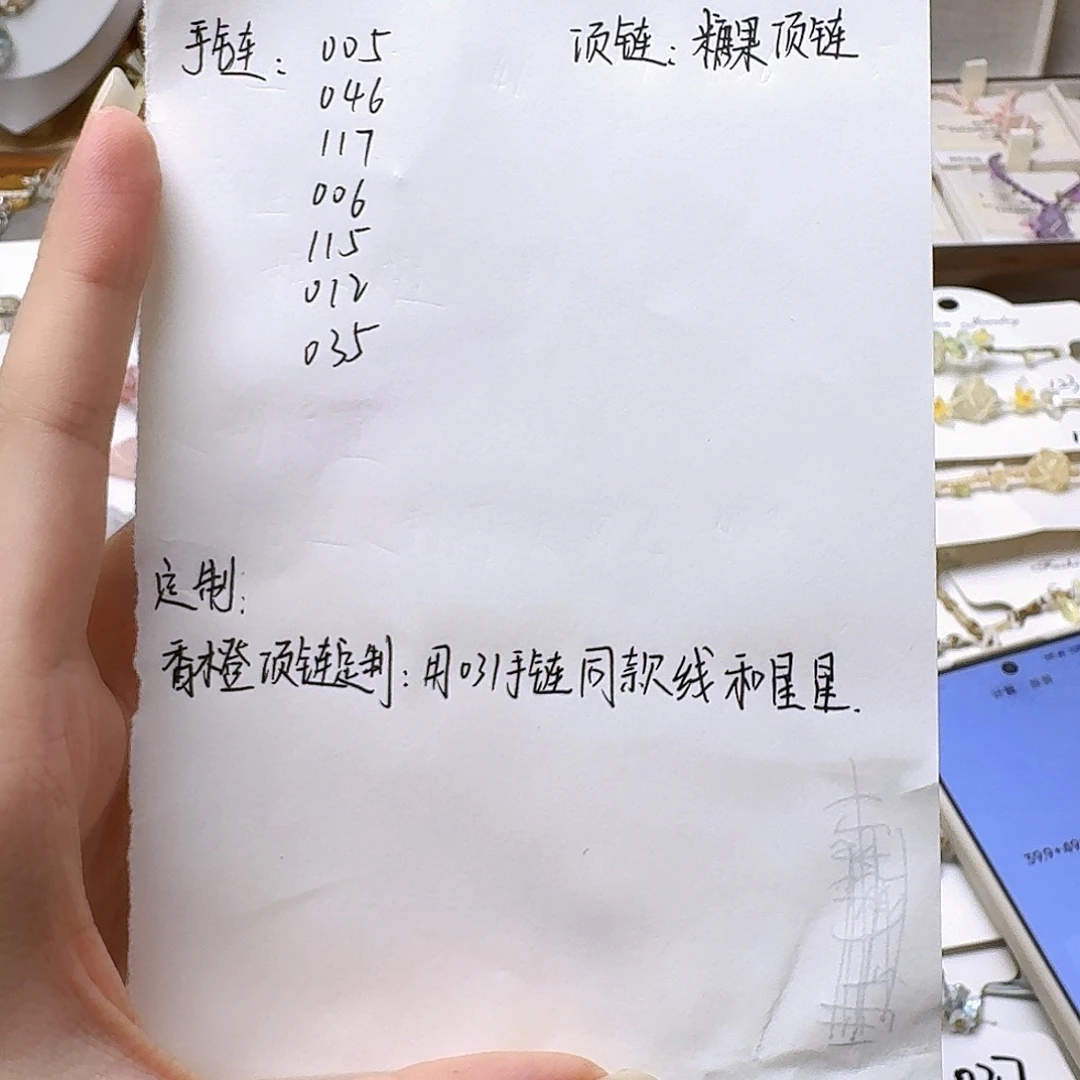 手链: 005
项链: 糖果项链
046
117
006
115
012
035
定制:
香橙项链定制: 用031手链同款线和星星.